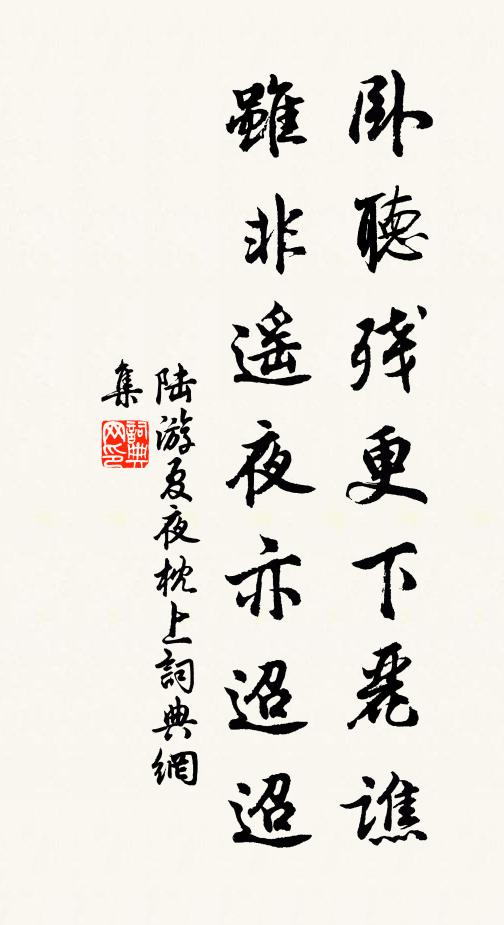 卧聽殘更下麗譙
雖非遥夜亦迢迢
陸游夏夜枕上詞典網
集
詞典
网